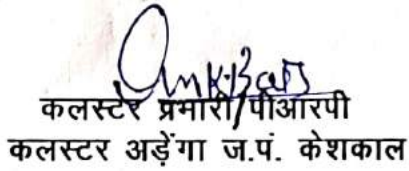 कलस्टर प्रभारी/पीआरपी
कलस्टर अड़ेंगा ज.पं. केशकाल